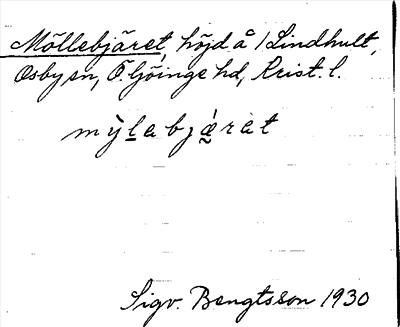 Möllebjäret, höjd å / Lindhult,
Osby sn, Ö. Göinge hd, Krist. l.
mỳlebjǽ̤rèt
Sigv. Bengtsson 1930